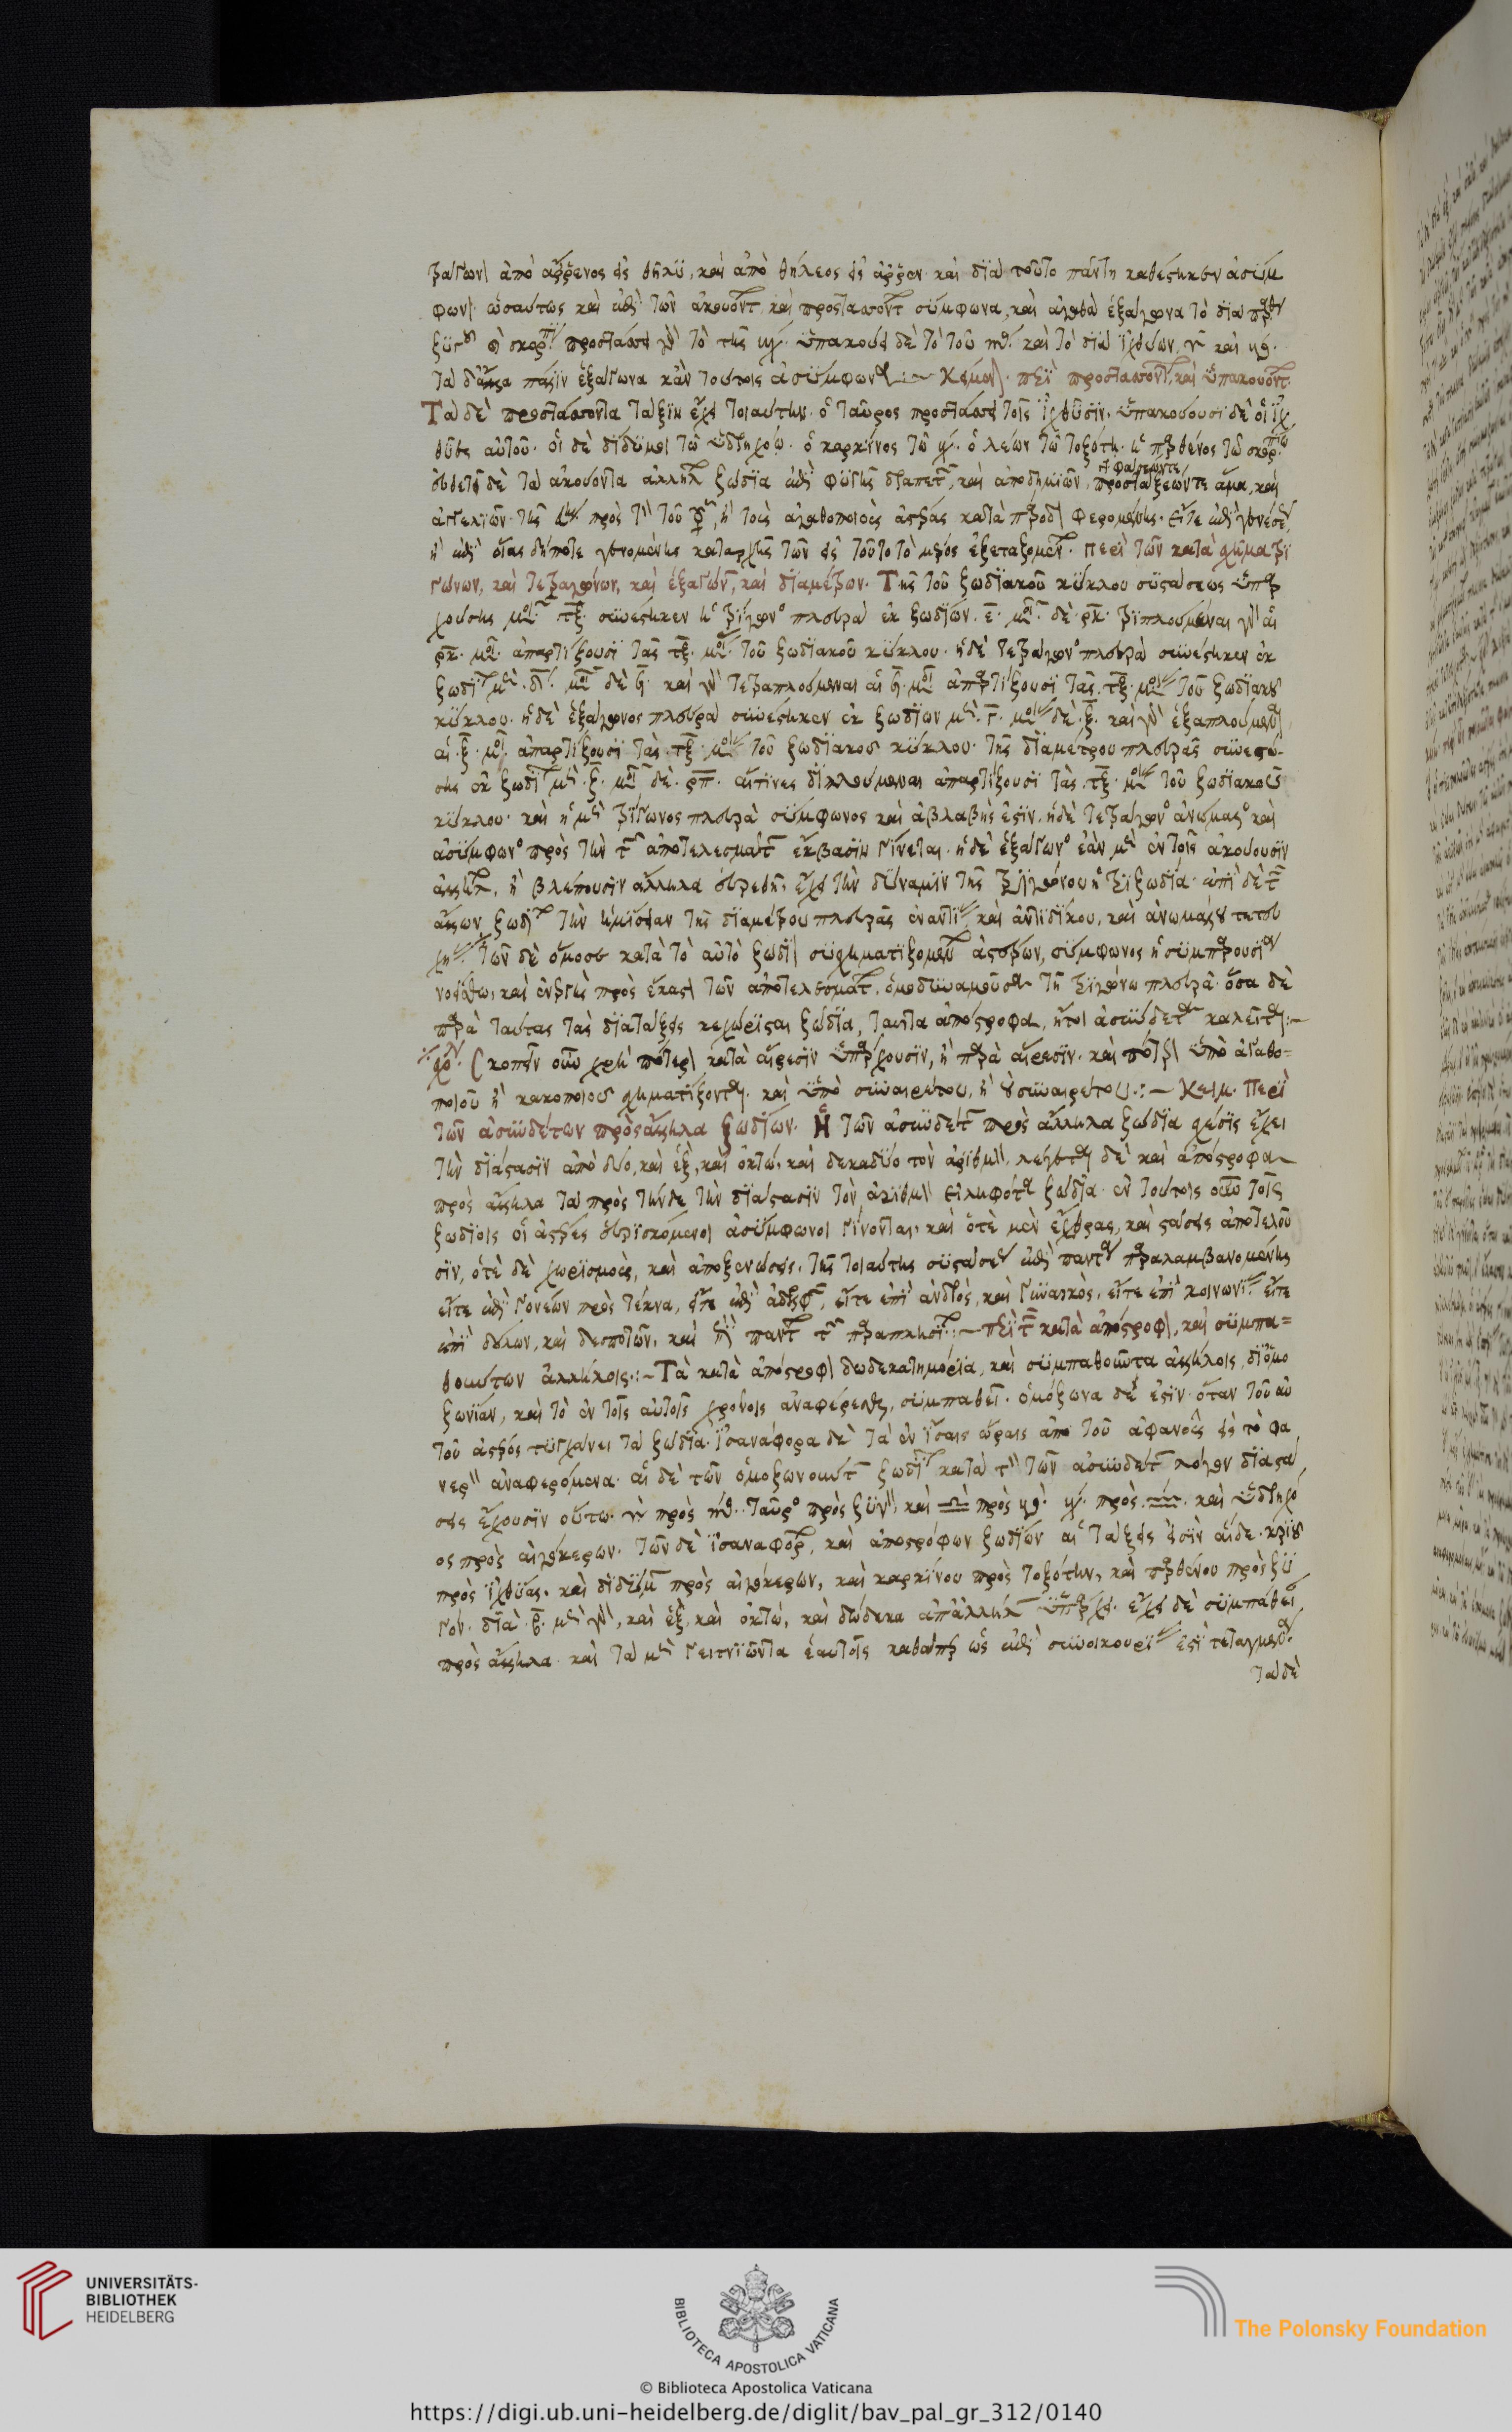 τράγων ἀπὸ ἄρρενος εἰς θῆλυ, καὶ ἀπὸ θήλεος εἰς ἄρρεν. καὶ διὰ τοῦτο πάντη καθέστηκεν ἀσύμ
φων. ὡσαύτως καὶ ἐπὶ τῶν ἀκουόντ. καὶ προστασσόντ σύμφωνα, καὶ ἀγαθὰ ἑξάγωνα τὸ διὰ
τὰ δ' ἄλλα πᾶσιν ἑξάγωνα κἂν τούτοις ἀσύμφωνα :~ Κείμεν. περὶ προστασσόντ. καὶ ὑπακουόντ.
Τὰ δὲ προστάσσοντα τάξιν ἔχει τοιαύτην. ὁ ταῦρος προστάσσει τοῖς ἰχθύσιν. ὑπακούουσι δὲ οἱ ἰχ
θύες αὐτοῦ. οἱ δὲ δίδυμοι τῶ ὑδρηχόω. ὁ καρκίνος τῶ ♑. ὁ λέων τῶ τοξότη. ἡ παρθένος τῶ σκορπίω
εὐθετεῖ δὲ τὰ ἀκούοντα ἀλλήλ ζώδια ἐπὶ φυγῆς δραπετ, καὶ ἀποδημιῶν, προστάξεών τε ἅμα, καὶ
ἀγγελιῶν. τῆς ☾ πρὸς τὸν τοῦ ☿, ἢ τοὺς ἀγαθοποιοὺς ἀστέρας κατὰ πάροδον φερομένης. εἴτε ἐπὶ γενέσε
ἢ ἐπὶ οἵας δήποτε γενομένης καταρχῆς τῶν εἰς τοῦτο τὸ μέρος ἐξεταζομέν. Περὶ τῶν κατὰ σχῆμα τρι
γώνων, καὶ τετραγώνων, καὶ ἑξαγών, καὶ διαμέτρων. Τῆς τοῦ ζωδιακοῦ κύκλου συστάσεως ὑπαρ
χούσης μοι. τξ. συνέστηκεν ἡ τρίγωνο πλευρὰ ἐκ ζωδίων. ε. μοι. δὲ. ρκ. τριπλούμεναι γὰρ αἱ
ρκ. μοι. ἀπαρτίζουσι τὰς τξ. μοι. τοῦ ζωδιακοῦ κύκλου. ἡ δὲ τετράγωνο πλευρὰ συνέστηκεν ἐκ
ζωδί μὲν. δ. μοι δὲ ϟ. καὶ γὰρ τετραπλούμεναι αἱ ϟ. μοι ἀπαρτίζουσι τὰς. τξ. μοι τοῦ ζωδιακοῦ
κύκλου. ἡ δὲ ἑξάγωνος πλευρὰ συνέστηκεν ἐκ ζωδίων μὲν. γ. μοι δὲ. ξ. καὶ γὰρ ἑξαπλούμεν
αἱ. ξ. μοι. ἀπαρτίζουσι τὰς. τξ. μοι τοῦ ζωδιακοῦ κύκλου. τῆς διαμέτρου πλευρᾶς συνεστώ-
σης ἐκ ζωδί μὲν. ζ. μοι δὲ. ρπ. αἵτινες διπλούμεναι ἀπαρτίζουσι τὰς. τξ. μοι τοῦ ζωδιακοῦ
κύκλου. καὶ ἡ μὲν τρίγωνος πλευρὰ σύμφωνος καὶ ἀβλαβής ἐστιν. ἡ δὲ τετράγωνο ἀνώμαλο καὶ
ἀσύμφωνο πρὸς τὴν τ ἀποτελεσμάτ ἔκβασιν γίνεται. ἡ δὲ ἑξάγωνο ἐὰν μὲν ἐν τοῖς ἀκούουσιν
ἀλλήλ, ἢ βλέπουσιν ἄλληλα εὑρεθῆ, ἔχει τὴν δύναμιν τῆς τριγώνου ἡ τρι ζώδια. ἐπὶ δὲ τ
ἄλλων ζωδί τὴν ἡμίσειαν τῆς διαμέτρου πλευρᾶς ἐναντί καὶ ἀντιδίκου, καὶ ἀνωμάλου
τῶν δὲ ὁμοῦ κατὰ τὸ αὐτὸ ζώδι συσχηματιζομέν ἀστέρων, σύμφωνος ἡ συμπαρουσία
νοείσθω, καὶ ἐνεργὴς πρὸς ἕκαστ τῶν ἀποτελεσμάτ. ὁμοδυναμοῦσα τῆ τριγώνω πλευρᾶ. ὅσα δὲ
παρὰ ταύτας τὰς διατάξεις κεχώρισται ζώδια, ταῦτα ἀπόστροφα, ἤτοι ἀσύνδετα καλεῖται :~
σχό. Σκοπεῖν οὖν χρὴ πότερ κατὰ αἵρεσιν ὑπάρχουσιν, ἢ παρὰ αἵρεσιν. καὶ πότερ ὑπὸ ἀγαθο=
ποιοῦ ἢ κακοποιοῦ σχηματίζονται. καὶ ὑπὸ συναιρέτου, ἢ οὐ συναιρέτου. :~ Κειμ. Περὶ
τῶν ἀσυνδέτων πρὸς ἄλληλα ζωδίων. Ἡ τῶν ἀσυνδέτ πρὸς ἄλληλα ζώδια σχέσις ἔχει
τὴν διάστασιν ἀπὸ δύο, καὶ ἕξ, καὶ ὀκτώ, καὶ δεκαδύο τὸν ἀριθμὸν. λέγεται δὲ καὶ ἀπόστροφα
πρὸς ἄλληλα τὰ πρὸς τήνδε τὴν διάστασιν τὸν ἀριθμὸν εἰληφότα ζώδια. ἐν τούτοις οὖν τοῖς
ζωδίοις οἱ ἀστέρες εὑρισκόμενοι ἀσύμφωνοι γίνονται, καὶ ὁτὲ μὲν ἔχθρας, καὶ στάσεις ἀποτελοῦ
σιν, ὁτὲ δὲ χωρισμοὺς, καὶ ἀποξενώσεις. τῆς τοιαύτης συστάσε ἐπὶ παντ παραλαμβανομένης
εἴτε ἐπὶ γονέων πρὸς τέκνα, εἴτε ἐπὶ ἀδελφ, εἴτε ἐπὶ ἀνδρὸς, καὶ γυναικὸς, εἴτε ἐπὶ κοινωνί εἴτε
ἐπὶ δούλων, καὶ δεσποτῶν, καὶ ἐπὶ πάντ τ παραπλησί. :~ περὶ τ κατὰ ἀπόστροφ, καὶ συμπα=
θούντων ἀλλήλοις :~ Τὰ κατὰ ἀπόστροφ δωδεκατημόρια, καὶ συμπαθοῦντα ἀλλήλοις, δι' ὁμο
ζωνίαν, καὶ τὸ ἐν τοῖς αὐτοῖς χρόνοις ἀναφέρεσθαι, συμπαθεῖ. ὁμόζωνα δέ ἐστιν. ὅταν τοῦ αὐ
τοῦ ἀστέρος τυγχάνει τὰ ζώδια. ἰσανάφορα δὲ τὰ ἐν ἴσαις ὥραις ἀπὸ τοῦ ἀφανοῦς εἰς τὸ φα
νερὸν ἀναφερόμενα. αἱ δὲ τῶν ὁμοζωνούντ ζωδί κατὰ τὸν τῶν ἀσυνδέτ λόγον διαστά
σεις ἔχουσιν οὕτω. ♈ πρὸς ♏. Ταῦρο πρὸς ζυγὸν, καὶ ♎ πρὸς ♉. ♑ πρὸς ♒. καὶ ὑδρηχό
ος πρὸς αἰγόκερων. τῶν δὲ ἰσαναφόρ, καὶ ἀποστρόφων ζωδίων αἱ τάξεις εἰσὶν αἵδε. κριοῦ
πρὸς ἰχθύας. καὶ διδύμ πρὸς αἰγόκερων, καὶ καρκίνου πρὸς τοξότην, καὶ παρθένου πρὸς ζυ
γόν. διὰ. β. μὲν γὰρ, καὶ ἕξ, καὶ ὀκτώ, καὶ δώδεκα ἀπ' ἀλλήλ ὑπάρχει. ἔχει δὲ συμπάθει
πρὸς ἄλληλα. καὶ τὰ μὲν γειτνιῶντα ἑαυτοῖς καθάπερ ὡς ἐπὶ συνοικουρί ἐστὶ τεταγμέν.
τὰ δὲ
UNIVERSITÄTS-
BIBLIOTHEK
HEIDELBERG
BIBLIOTECA APOSTOLICA VATICANA
The Polonsky Foundation
© Biblioteca Apostolica Vaticana
https://digi.ub.uni-heidelberg.de/diglit/bav_pal_gr_312/0140